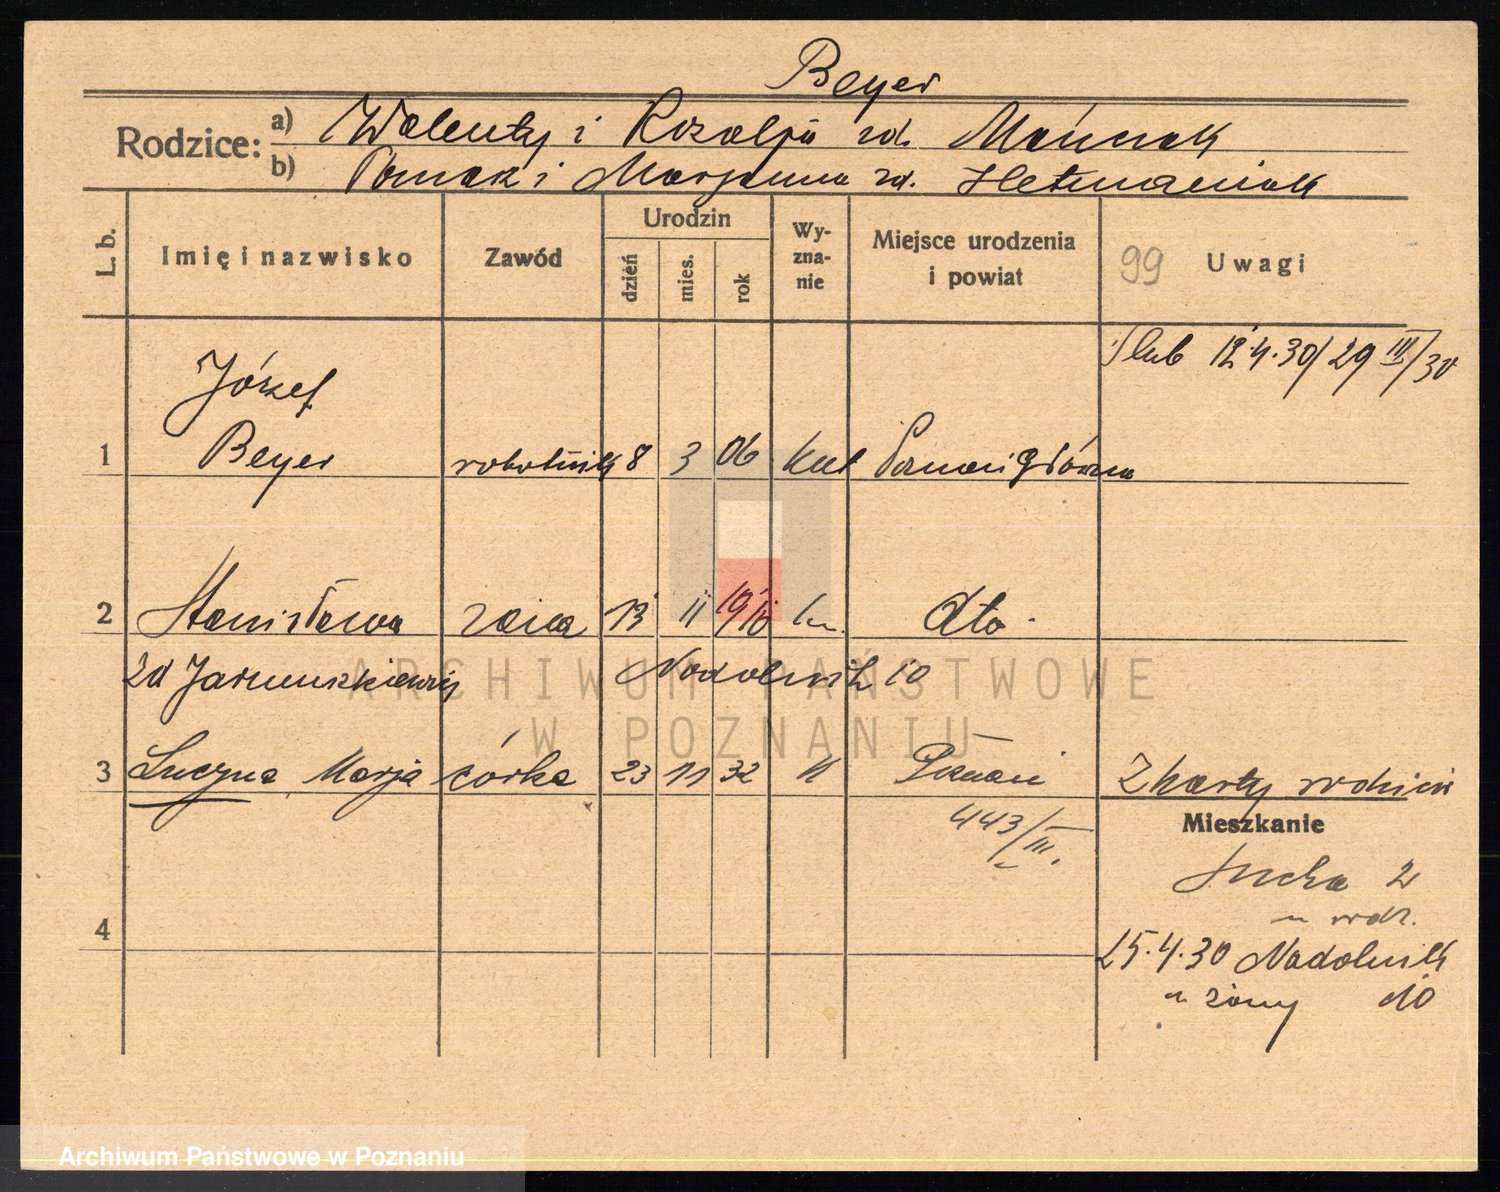 Beyer
Rodzice: a) Walenty i Rozalja zd. Mańczak
b) Tomasz i Marjanna zd. Hetmaniak
L. b. Imię i nazwisko Zawód Urodzin dzień mies. rok Wy-zna-nie Miejsce urodzenia i powiat 99 Uwagi
Ślub 12.4.30/29 III/30
Józef
1 Beyer robotnik 8 3 06 kat Poznań główna
2 Stanisława żona 13 11 1910 dto
zd Jarmuszkiewicz Nadolnik 10
3 Lucyna Marja córka 23 11 32 k Poznań Z karty rodzin
443/III.
Mieszkanie
Sucha 2
u rodz.
4
15.4.30 Nadolnik
u żony 10
ARCHIWUM PAŃSTWOWE
W POZNANIU
Archiwum Państwowe w Poznaniu